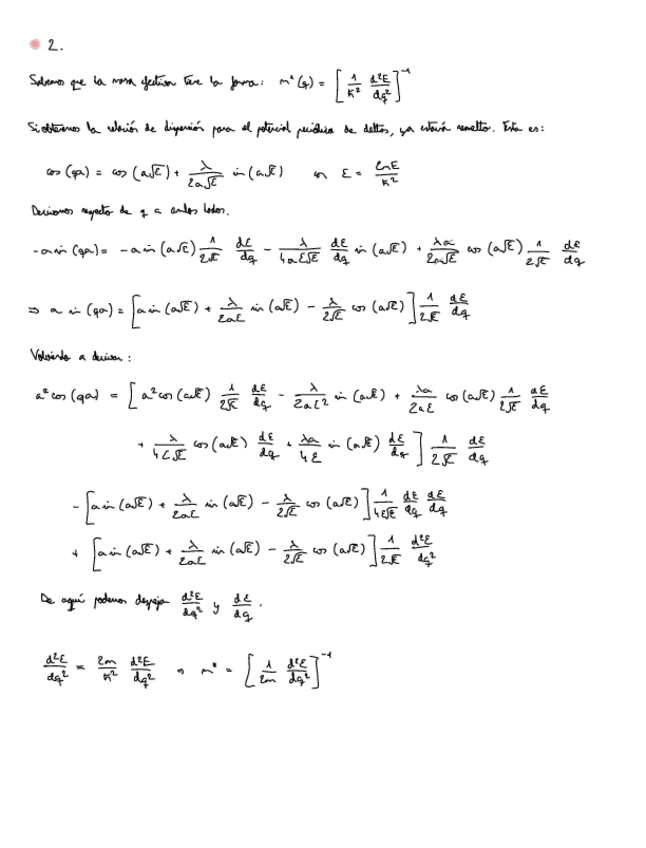 2.
Sabemos que la masa efectiva tiene la forma: m*(q) = [1/ħ² d²E/dq²]⁻¹
Si obtenemos la relación de dispersión para el potencial periódico de deltas, ya estará resuelto. Esta es:
cos(qa) = cos(a√ε) + λ/(2a√ε) sin(a√ε) con ε = 2mE/ħ²
Derivamos respecto de q a ambos lados.
-a sin(qa) = -a sin(a√ε) 1/(2√ε) dε/dq - λ/(4aε√ε) dε/dq sin(a√ε) + λa/(2a√ε) cos(a√ε) 1/(2√ε) dε/dq
⇒ a sin(qa) = [a sin(a√ε) + λ/(2aε) sin(a√ε) - λ/(2√ε) cos(a√ε)] 1/(2√ε) dε/dq
Volviendo a derivar:
a² cos(qa) = [a² cos(a√ε) 1/(2√ε) dε/dq - λ/(2aε²) sin(a√ε) + λa/(2aε) cos(a√ε) 1/(2√ε) dε/dq
+ λ/(4ε√ε) cos(a√ε) dε/dq + λa/(4ε) sin(a√ε) dε/dq] 1/(2√ε) dε/dq
- [a sin(a√ε) + λ/(2aε) sin(a√ε) - λ/(2√ε) cos(a√ε)] 1/(4ε√ε) dε/dq dε/dq
+ [a sin(a√ε) + λ/(2aε) sin(a√ε) - λ/(2√ε) cos(a√ε)] 1/(2√ε) d²ε/dq²
De aquí podemos despejar d²ε/dq² y dε/dq.
d²ε/dq² = 2m/ħ² d²E/dq² → m* = [1/2m d²ε/dq²]⁻¹